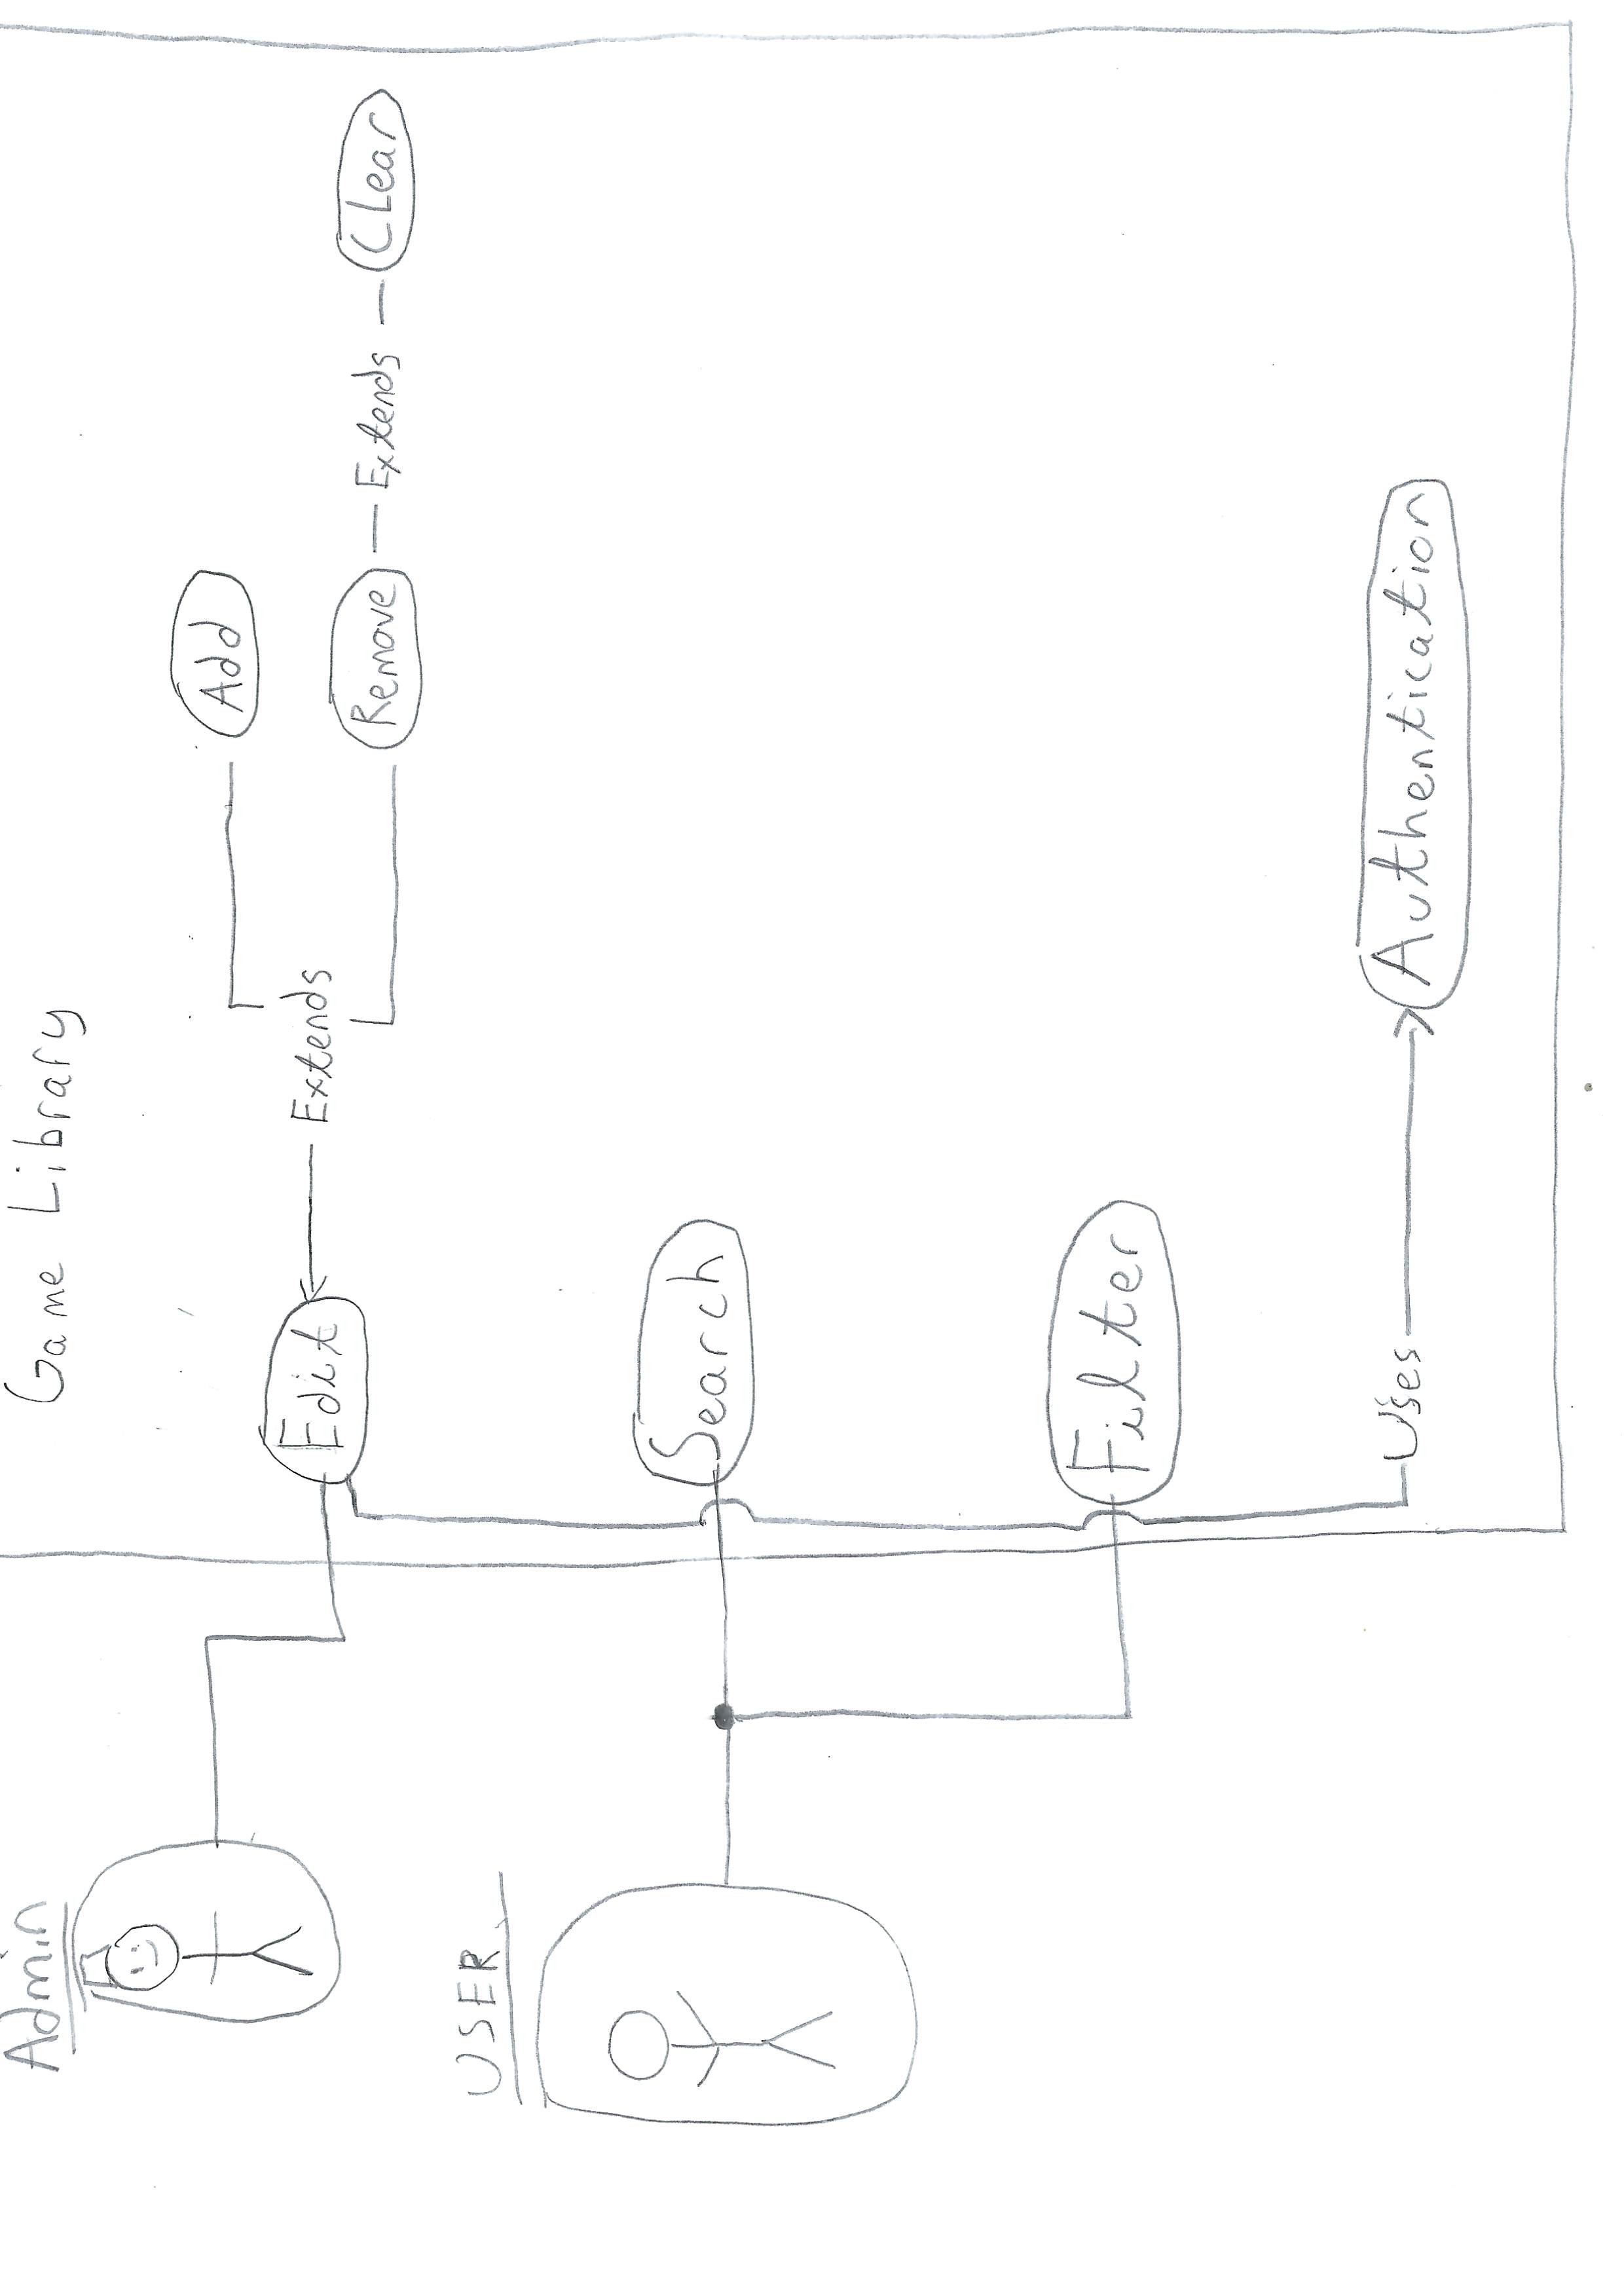 Admin
Game Library
Add
Edit
Extends
Remove
Extends
CLear
USER
Search
Filter
Uses
Authentication